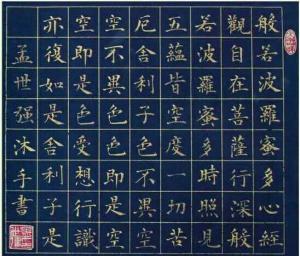 般若波羅蜜多心經
觀自在菩薩行深般
若波羅蜜多時照見
五蘊皆空度一切苦
厄舍利子色不異空
空不異色色即是空
空即是色受想行識
亦復如是舍利子是
孟世强沐手書